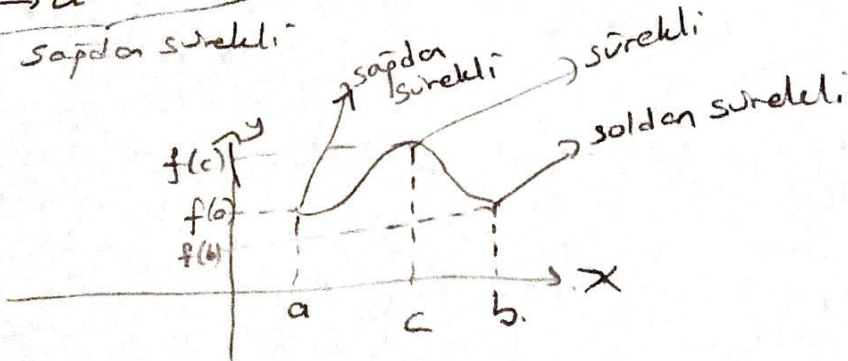 sağdan sürekli
sağdan
sürekli
sürekli
soldan sürekli
y
f(c)
f(a)
f(b)
x
a
c
b.